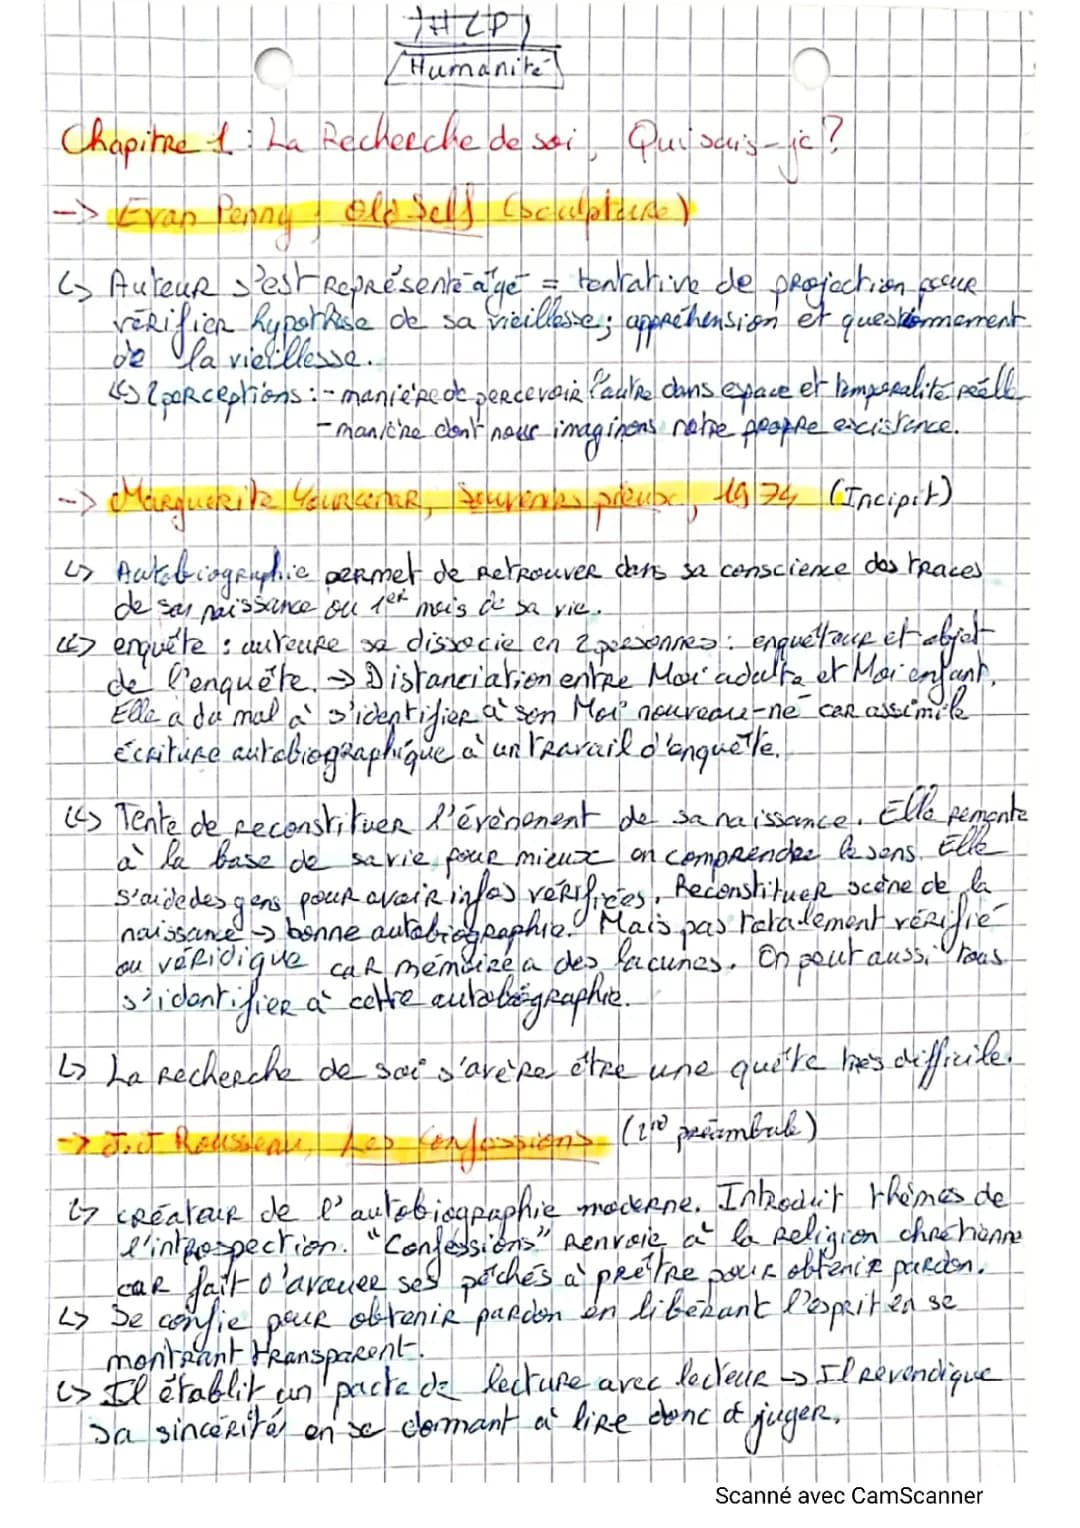 HLP
Humanité
Chapitre 1 : La Recherche de soi, Qui suis-je ?
-> Evan Penny, Old Self (sculpture)
↳ Auteur s'est représenté âgé = tentative de projection pour
vérifier hypothèse de sa vieillesse ; appréhension et questionnement
de la vieillesse.
↳ 2 perceptions : - manière de percevoir l'autre dans espace et temporalité réelle
- manière dont nous imaginons notre propre existence.
-> Marguerite Yourcenar, Souvenirs pieux, 1974 (Incipit)
↳ Autobiographie permet de retrouver dans sa conscience des traces
de sa naissance ou 1er mois de sa vie.
↳ enquête : auteure se dissocie en 2 personnes : enquêteur et objet
de l'enquête. -> Distanciation entre Moi adulte et Moi enfant.
Elle a du mal à s'identifier à son Moi nouveau-né car assimile
écriture autobiographique à un travail d'enquête.
↳ Tente de reconstituer l'évènement de sa naissance. Elle remonte
à la base de sa vie pour mieux en comprendre le sens. Elle
s'aide des gens pour avoir infos vérifiées. Reconstituer scène de la
naissance -> bonne autobiographie. Mais pas totalement vérifié
ou véridique car mémoire a des lacunes. On peut aussi tous
s'identifier à cette autobiographie.
↳ La recherche de soi s'avère être une quête très difficile.
-> J.J Rousseau, Les Confessions (préambule)
↳ créateur de l'autobiographie moderne. Introduit thèmes de
l'introspection. "Confessions" renvoie à la religion chrétienne
car fait d'avouer ses péchés à prêtre pour obtenir pardon.
↳ Se confie pour obtenir pardon en libérant l'esprit en se
montrant transparent.
↳ Il établit un pacte de lecture avec lecteur -> Il revendique
sa sincérité en se donnant à lire donc à juger.
Scanné avec CamScanner